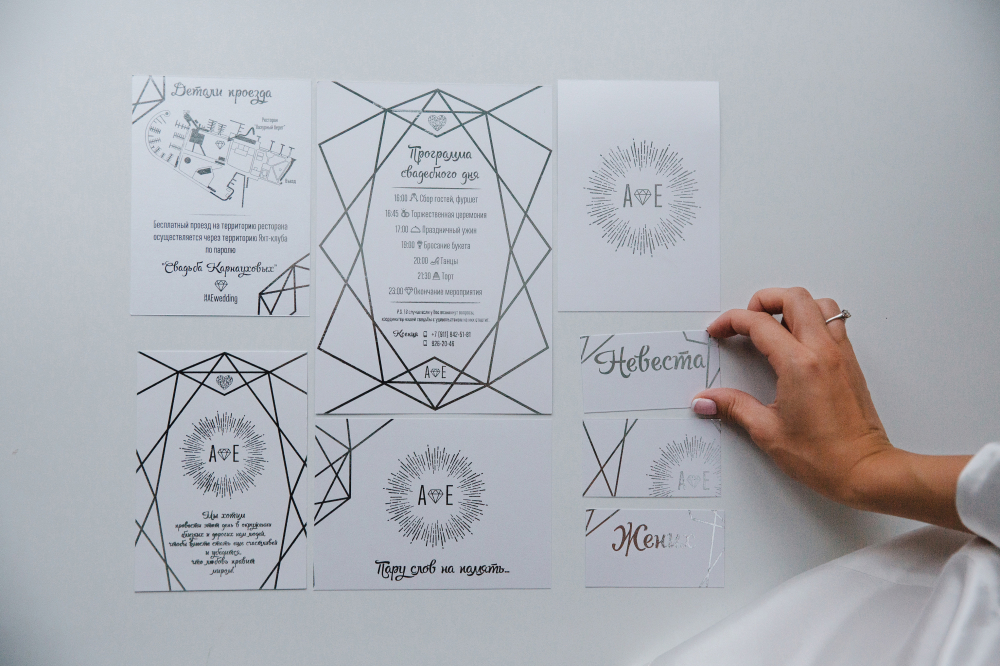 Детали проезда
Ресторан
"Лазурный берег"
Въезд
Бесплатный проезд на территорию ресторана
осуществляется через территорию Яхт-клуба
по паролю
"Свадьба Карнауховых"
#AEwedding
Программа
свадебного дня
16:00 Сбор гостей, фуршет
16:45 Торжественная церемония
17:00 Праздничный ужин
19:00 Бросание букета
20:00 Танцы
21:30 Торт
23:00 Окончание мероприятия
Ксения +7 (981) 842-51-81
928-20-46
A E
A E
Невеста
A E
Жених
A E
Мы хотим
провести этот день в окружении
близких и дорогих нам людей,
чтобы вместе стать еще счастливей
и убедиться,
что любовь правит
миром!
A E
Пару слов на память...